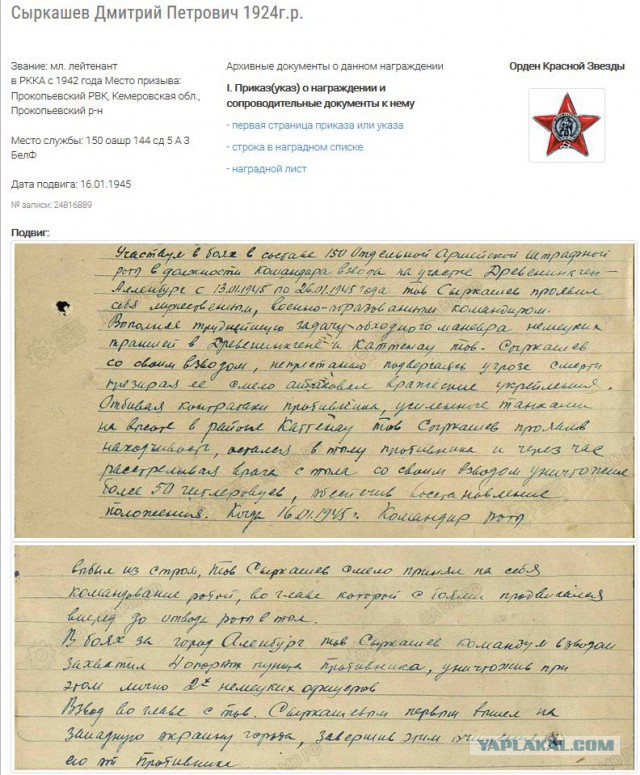 Сыркашев Дмитрий Петрович 1924г.р.
Звание: мл. лейтенант
в РККА с 1942 года Место призыва:
Прокопьевский РВК, Кемеровская обл.,
Прокопьевский р-н
Место службы: 150 оашр 144 сд 5 А 3
БелФ
Дата подвига: 16.01.1945
№ записи: 24816889
Архивные документы о данном награждении
I. Приказ(указ) о награждении и
сопроводительные документы к нему
- первая страница приказа или указа
- строка в наградном списке
- наградной лист
Орден Красной Звезды
Подвиг:
Участвуя в боях в составе 150 Отдельной Армейской Штрафной
роты в должности Командира взвода на участке Древенинкген-
Алленбург с 13.01.1945 по 26.01.1945 года тов Сыркашев проявил
себя мужественным, военно-образованным командиром.
Выполняя труднейшую задачу обходного маневра немецких
траншей в Древенингкене и Каттенау тов. Сыркашев
со своим взводом, непрестанно подвергаясь угрозе смерти
презирая ее смело атаковал вражеские укрепления.
Отбивая контратаки противника, усиленные танками
на высоте в районе Каттенау тов Сыркашев проявив
находчивость, остался в тылу противника и через час
расстреливая врага с тыла со своим взводом уничтожил
более 50 гитлеровцев, обеспечив восстановление
положения. Когда 16.01.1945 г. Командир роты
выбыл из строя, тов Сыркашев смело принял на себя
командование ротой, во главе которой с боями продвигался
вперед до отвода роты в тыл.
В боях за город Аленбург тов Сыркашев командуя взводом
захватил 4 опорных пункта противника, уничтожив при
этом лично 2х немецких офицеров
Взвод во главе с тов. Сыркашевым первым вышел на
западную окраину города, завершив этим
его от противника
YAPLAKAL.COM